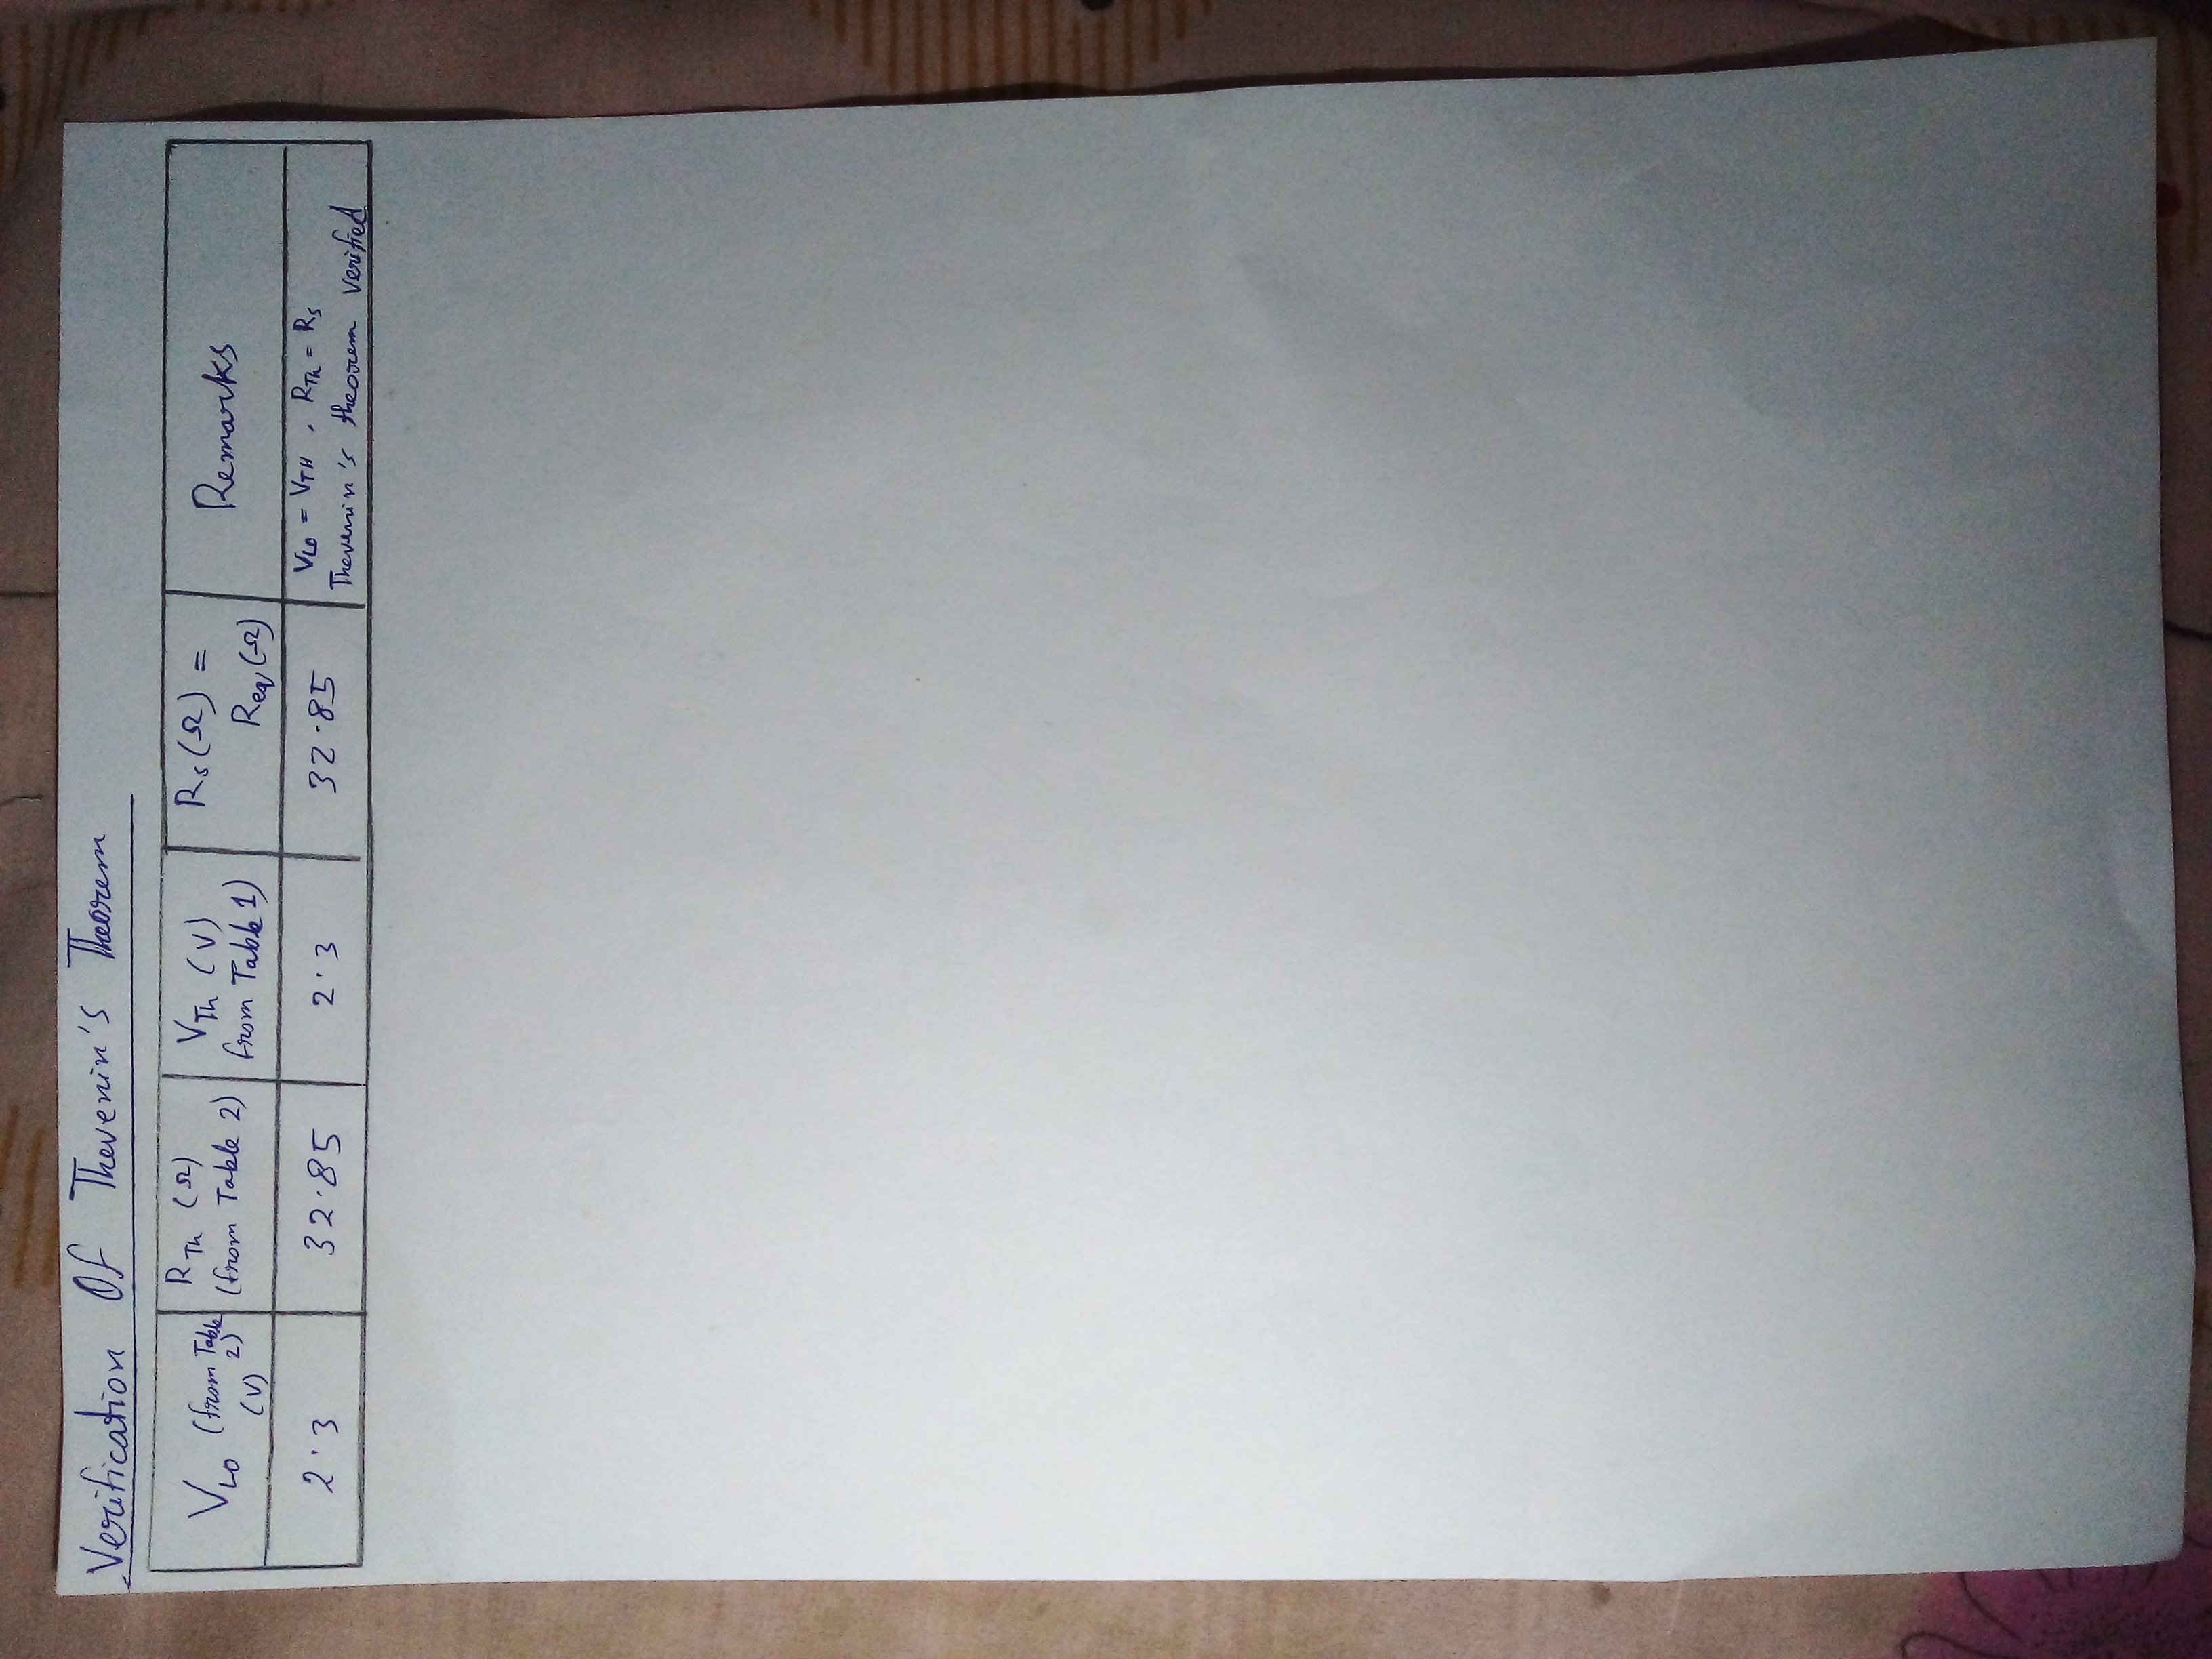 Verification Of Thevenin's Theorem
V_LO (from Table 2) (V) | R_Th (Ω) (from Table 2) | V_Th (V) from Table 1) | R_S (Ω) = R_eq (Ω) | Remarks
2.3 | 32.85 | 2.3 | 32.85 | V_LO = V_TH , R_Th = R_S Thevenin's theorem verified